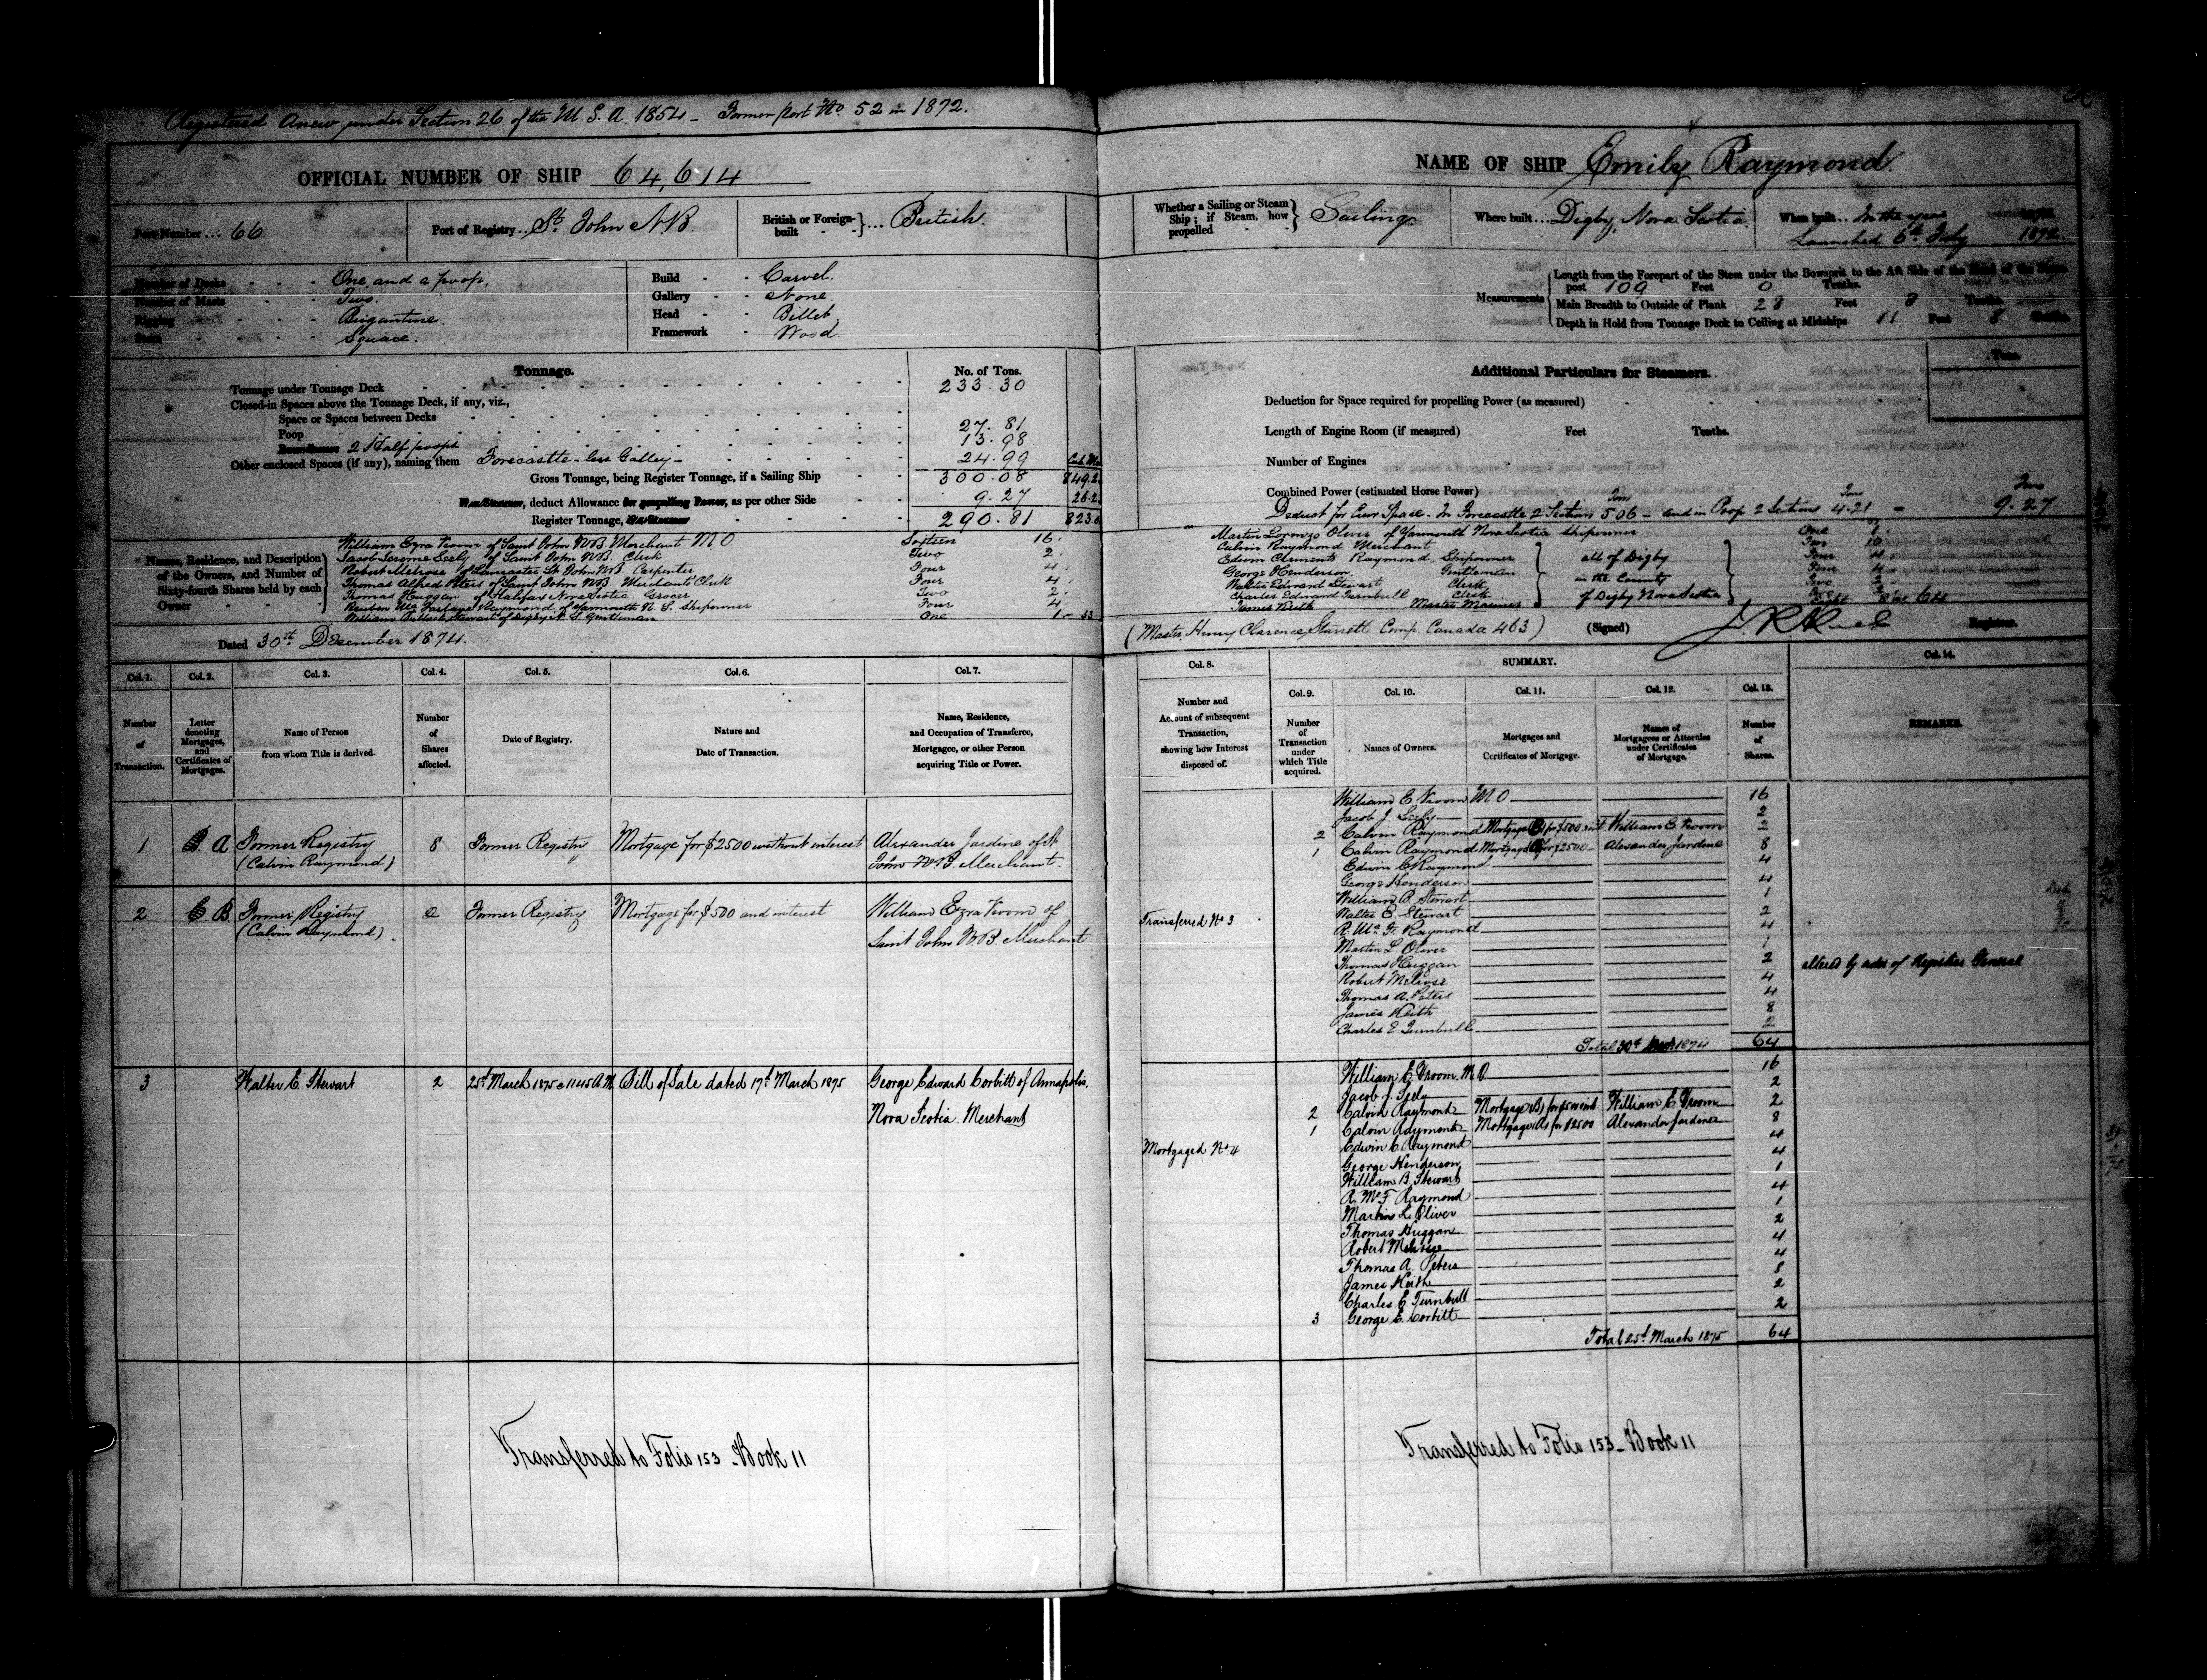 Registered Anew under Section 26 of the M. S. A. 1854 - Former Port No 52 in 1872.
OFFICIAL NUMBER OF SHIP 64,614
Port Number ... 66.
Port of Registry .. St. John N.B.
British or Foreign-built } ... British
Number of Decks - One and a poop,
Number of Masts - Two.
Rigging - Brigantine.
Stern - Square.
Build - Carvel.
Gallery - None
Head - Billet
Framework - Wood.
Tonnage.
No. of Tons.
Tonnage under Tonnage Deck 233.30
Closed-in Spaces above the Tonnage Deck, if any, viz.,
Space or Spaces between Decks
Poop 27.81
2 Half poops 13.98
Other enclosed Spaces (if any), naming them Forecastle - less Galley - 24.99
Gross Tonnage, being Register Tonnage, if a Sailing Ship 300.08
deduct Allowance for propelling Power, as per other Side 9.27
Register Tonnage, 290.81
Names, Residence, and Description of the Owners, and Number of Sixty-fourth Shares held by each Owner
William Ezra Vroom of Saint John N.B. Merchant M O Sixteen 16
Jacob Jerome Seely of Saint John N.B. Clerk Two 2
Robert Melrose of Lancaster St John N.B. Carpenter Four 4
Thomas Alfred Peters of Saint John N.B. Merchants Clerk Four 4
Thomas Huggan of Halifax Nova Scotia Grocer Two 2
Reuben McFarlane Raymond of Yarmouth N. S. Shipowner Four 4
William Stewart of Digby N. S. Gentleman One 1 - 33
Dated 30th December 1874.
Col. 1. Col. 2. Col. 3. Col. 4. Col. 5. Col. 6. Col. 7.
Number of Transaction.
Letter denoting Mortgages, and Certificates of Mortgages.
Name of Person from whom Title is derived.
Number of Shares affected.
Date of Registry.
Nature and Date of Transaction.
Name, Residence, and Occupation of Transferee, Mortgagee, or other Person acquiring Title or Power.
1 A Former Registry 8 Former Registry Mortgage for $2500 without interest Alexander Jardine of St
(Calvin Raymond) " John N.B. Merchant.
2 B. Former Registry 2 Former Registry Mortgage for $500 and interest William Ezra Vroom of
(Calvin Raymond) Saint John N.B. Merchant
3 Walter E. Stewart 2 25th March 1875 @ 11.45 A.M. Bill of Sale dated 17th March 1875 George Edward Corbitt of Annapolis.
Nova Scotia Merchant
Transferred to Folio 153 - Book 11
NAME OF SHIP Emily Raymond.
Whether a Sailing or Steam Ship; if Steam, how propelled } Sailing.
Where built ... Digby, Nova Scotia
When built ... In the year 1872.
Launched 6th July
Measurements
Length from the Forepart of the Stem under the Bowsprit to the Aft Side of the Head of the Stern-
post 109 Feet 0 Tenths.
Main Breadth to Outside of Plank 28 Feet 8 Tenths.
Depth in Hold from Tonnage Deck to Ceiling at Midships 11 Feet 8 Tenths.
Additional Particulars for Steamers.
Tons.
Deduction for Space required for propelling Power (as measured)
Length of Engine Room (if measured) Feet Tenths.
Number of Engines
Combined Power (estimated Horse Power)
Deduct for Crew Space - In Forecastle 2 Section 5.06 - and in Poop 2 Sections 4.21 = 9.27
Martin Lorenzo Oliver of Yarmouth Nova Scotia Shipowner One 1
Calvin Raymond Merchant Ten 10
Edwin Clements Raymond, Shipowner Four 4
George Henderson, Gentleman Four 4
Walter Edward Stewart Clerk Two 2
Charles Edward Turnbull Clerk Two 2
James Keith Master Mariner Eight 8
all of Digby
in the County
of Digby Nova Scotia
(Master, Henry Clarence Starrett Comp. Canada 463)
(Signed)
Registrar.
Col. 8.
Number and Account of subsequent Transaction, showing how Interest disposed of.
SUMMARY.
Col. 9. Col. 10. Col. 11. Col. 12. Col. 13. Col. 14.
Number of Transaction under which Title acquired.
Names of Owners.
Mortgages and Certificates of Mortgage.
Names of Mortgagees or Attornies under Certificates of Mortgage.
Number of Shares.
REMARKS.
William E. Vroom M O 16
Jacob J. Seely 2
2 Calvin Raymond Mortgage (B) for $500 & int William E Vroom 2
1 Calvin Raymond Mortgage (A) for $2500 - Alexander Jardine 8
Edwin C Raymond 4
George Henderson 4
William B. Stewart 1
Transferred No 3 Walter E. Stewart 2
R. Mc F. Raymond 4
Martin L. Oliver 1
Thomas Huggan 2
altered by order of Register General
Robert Melrose 4
Thomas A. Peters 4
James Keith 8
Charles E Turnbull 2
Total 30th 1874 64
William E. Vroom. M.O. 16
Jacob J. Seely 2
2 Calvin Raymond Mortgage (B) for $500 & int William E Vroom 2
1 Calvin Raymond Mortgage (A) for $2500 Alexander Jardine 8
Edwin C Raymond 4
Mortgaged No 4
George Henderson 4
William B. Stewart 1
R. McF. Raymond 4
Martin L. Oliver 1
Thomas Huggan 2
Robert Melrose 4
Thomas A. Peters 4
James Keith 8
Charles E Turnbull 2
3 George E. Corbitt 2
Total 25th March 1875 64
Transferred to Folio 153 - Book 11